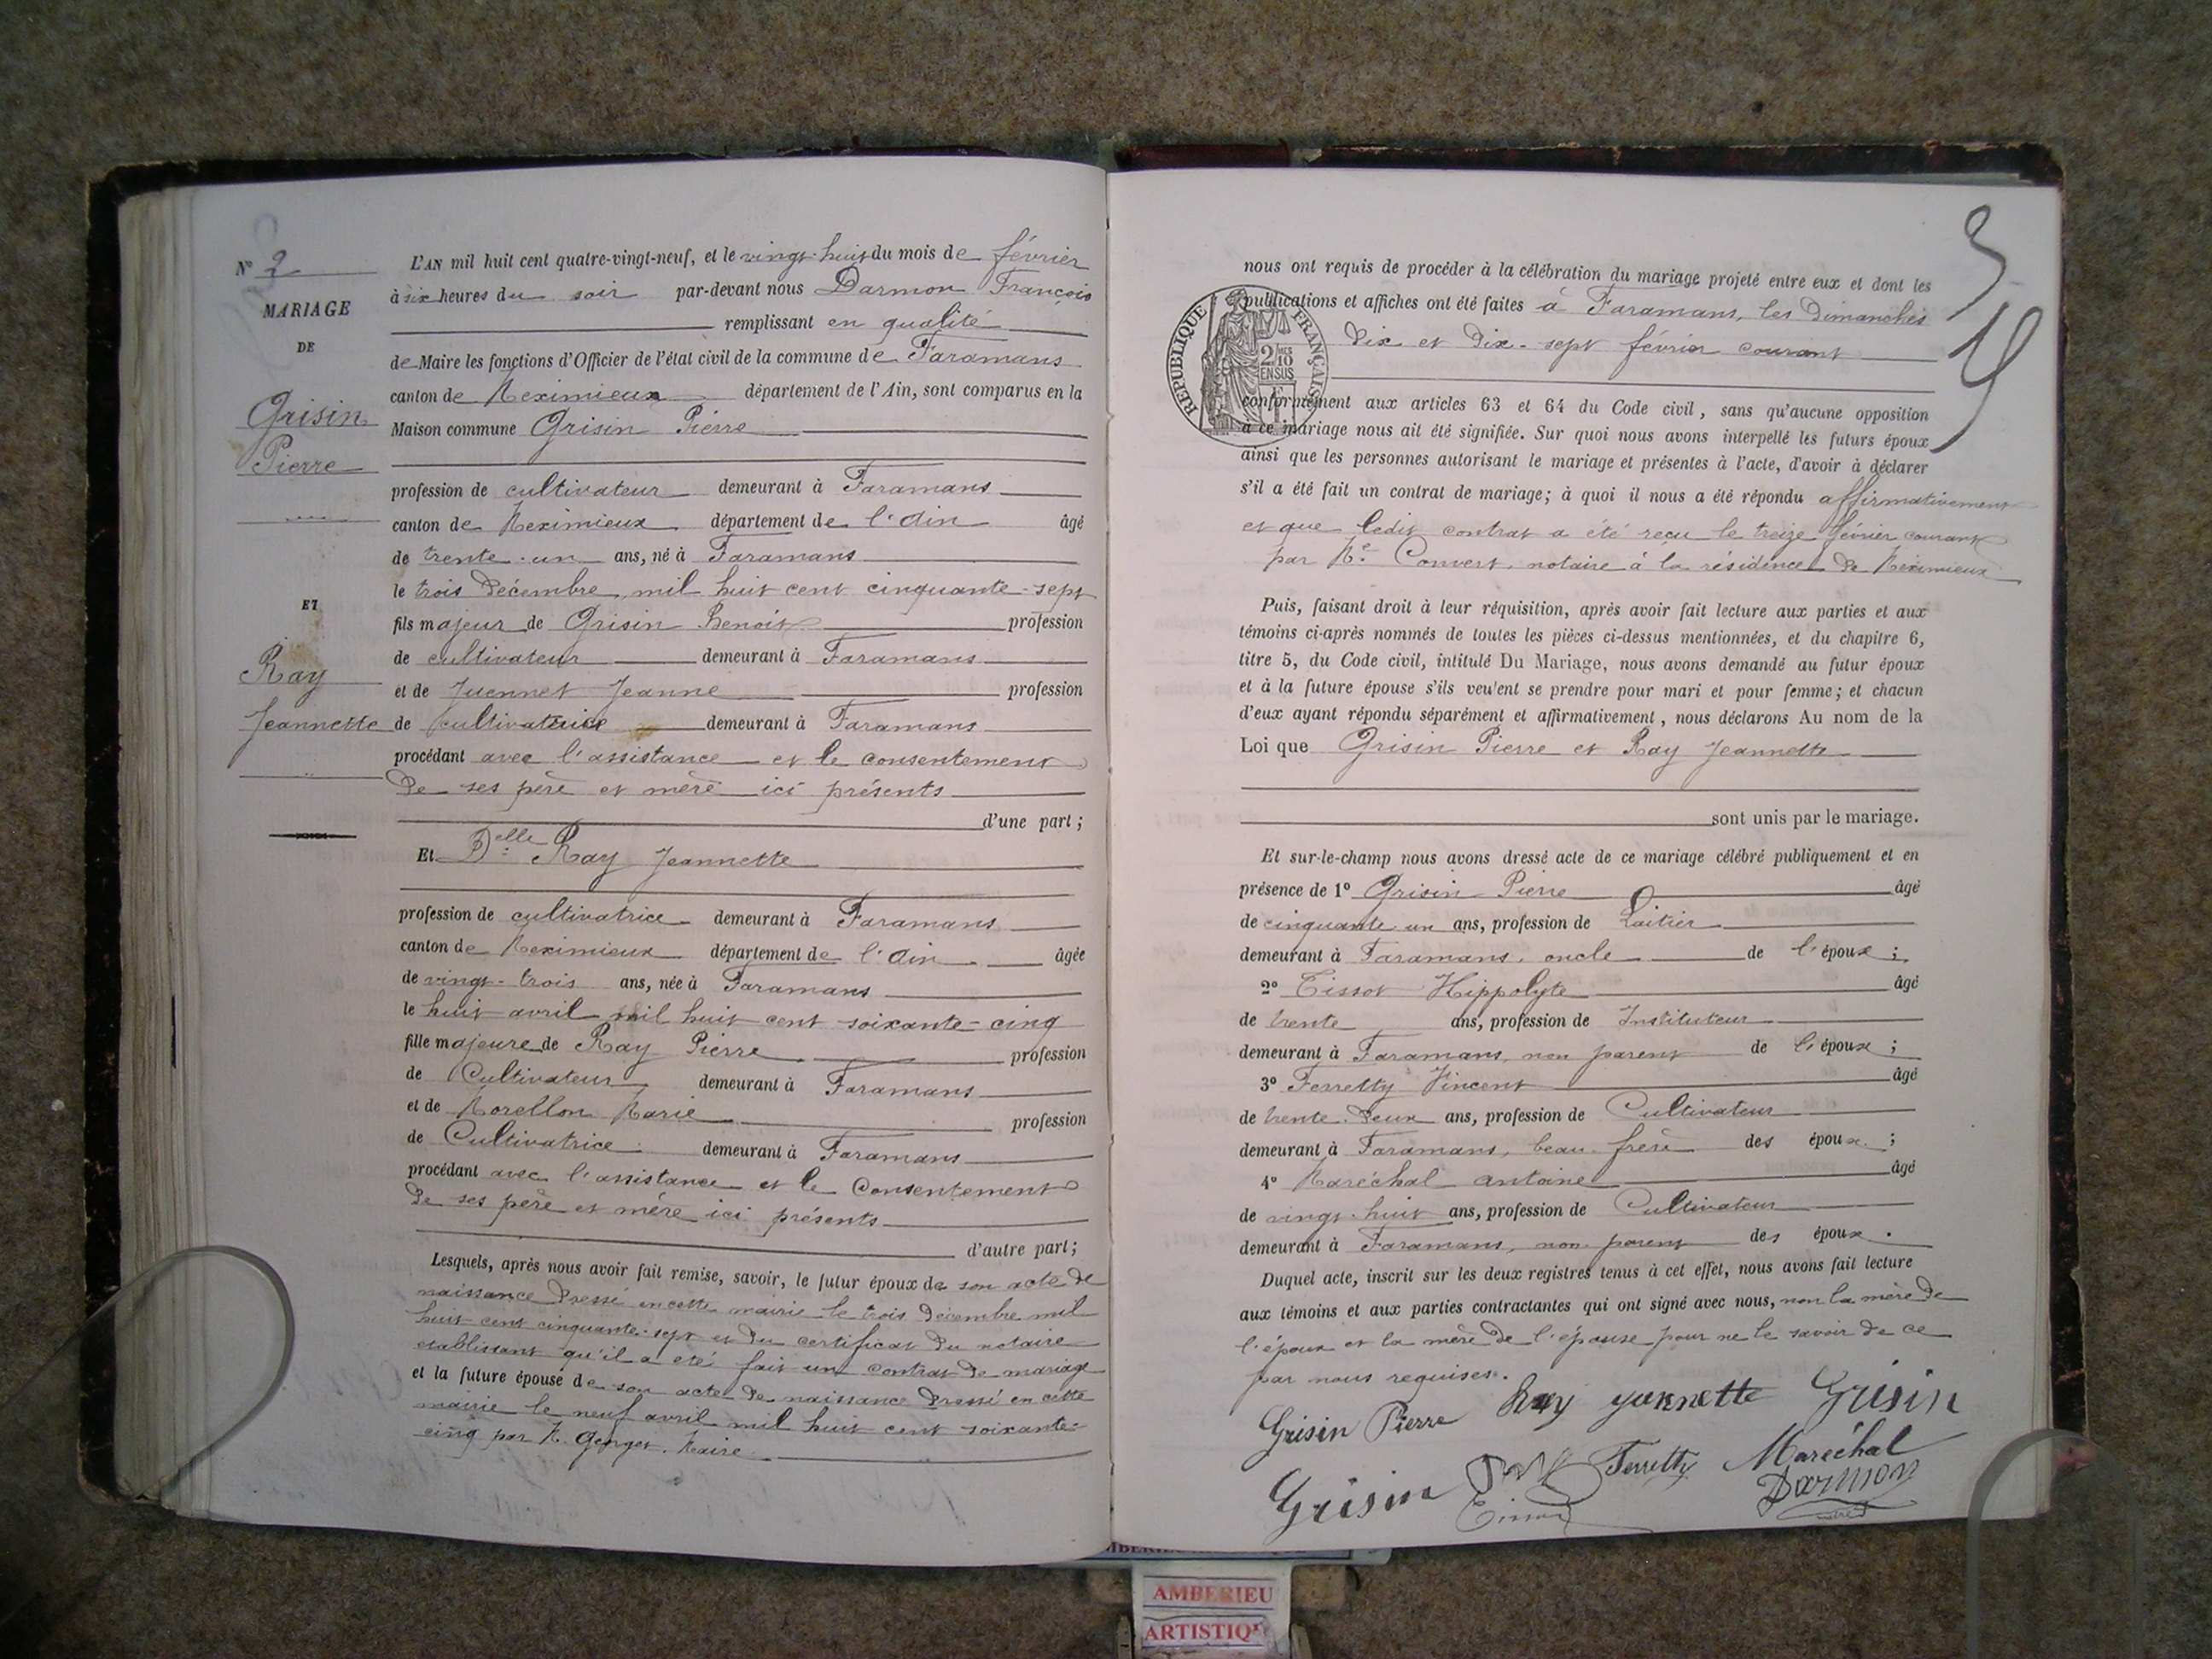 N° 2
MARIAGE
DE
Grisin
Pierre
ET
Ray
Jeannette
L'AN mil huit cent quatre-vingt-neuf, et le vingt-huit du mois de février
à six heures du soir par-devant nous Darmon François
remplissant en qualité
de Maire les fonctions d'Officier de l'état civil de la commune de Faramans
canton de Meximieux département de l'Ain, sont comparus en la
Maison commune Grisin Pierre
profession de cultivateur demeurant à Faramans
canton de Meximieux département de l'Ain âgé
de trente-un ans, né à Faramans
le trois Décembre, mil huit cent cinquante-sept
fils majeur de Grisin Benoit profession
de cultivateur demeurant à Faramans
et de Juennet Jeanne profession
de cultivatrice demeurant à Faramans
procédant avec l'assistance et le consentement
De ses père et mère ici présents
d'une part ;
Et Delle Ray Jeannette
profession de cultivatrice demeurant à Faramans
canton de Meximieux département de l'Ain âgée
de vingt-trois ans, née à Faramans
le huit avril mil huit cent soixante-cinq
fille majeure de Ray Pierre profession
de Cultivateur demeurant à Faramans
et de Morellon Marie profession
de Cultivatrice demeurant à Faramans
procédant avec l'assistance et le Consentement
De ses père et mère ici présents
d'autre part ;
Lesquels, après nous avoir fait remise, savoir, le futur époux de son acte de
naissance Dressé en cette mairie le trois Décembre mil
huit cent cinquante-sept et du certificat du notaire
établissant qu'il a été fait un contrat de mariage
et la future épouse de son acte de naissance Dressé en cette
mairie le neuf avril mil huit cent soixante-
cinq par M. Georget. Maire
3
RÉPUBLIQUE FRANÇAISE
nous ont requis de procéder à la célébration du mariage projeté entre eux et dont les
publications et affiches ont été faites à Faramans, les Dimanches
Dix et Dix-sept février courant
conformément aux articles 63 et 64 du Code civil, sans qu'aucune opposition
à ce mariage nous ait été signifiée. Sur quoi nous avons interpellé les futurs époux
ainsi que les personnes autorisant le mariage et présentes à l'acte, d'avoir à déclarer
s'il a été fait un contrat de mariage ; à quoi il nous a été répondu affirmativement
et que ledit contrat a été reçu le treize février courant
par Me Convert, notaire à la résidence De Meximieux
Puis, faisant droit à leur réquisition, après avoir fait lecture aux parties et aux
témoins ci-après nommés de toutes les pièces ci-dessus mentionnées, et du chapitre 6,
titre 5, du Code civil, intitulé Du Mariage, nous avons demandé au futur époux
et à la future épouse s'ils veulent se prendre pour mari et pour femme ; et chacun
d'eux ayant répondu séparément et affirmativement, nous déclarons Au nom de la
Loi que Grisin Pierre et Ray Jeannette
sont unis par le mariage.
Et sur-le-champ nous avons dressé acte de ce mariage célébré publiquement et en
présence de 1° Grisin Pierre âgé
de cinquante-un ans, profession de Laitier
demeurant à Faramans, oncle de l'époux ;
2° Tissot Hippolyte âgé
de trente ans, profession de Instituteur
demeurant à Faramans, non parent de l'époux ;
3° Ferretty Vincent âgé
de trente-Deux ans, profession de Cultivateur
demeurant à Faramans, beau-frère des époux ;
4° Maréchal Antoine âgé
de vingt-huit ans, profession de Cultivateur
demeurant à Faramans, non parent des époux.
Duquel acte, inscrit sur les deux registres tenus à cet effet, nous avons fait lecture
aux témoins et aux parties contractantes qui ont signé avec nous, non la mère De
l'époux et la mère De l'épouse pour ne le savoir de ce
par nous requises.
Grisin Pierre Ray yannette Grisin
Grisin Ferretty Maréchal
Tissot Darmon
AMBERIEU
ARTISTIQ